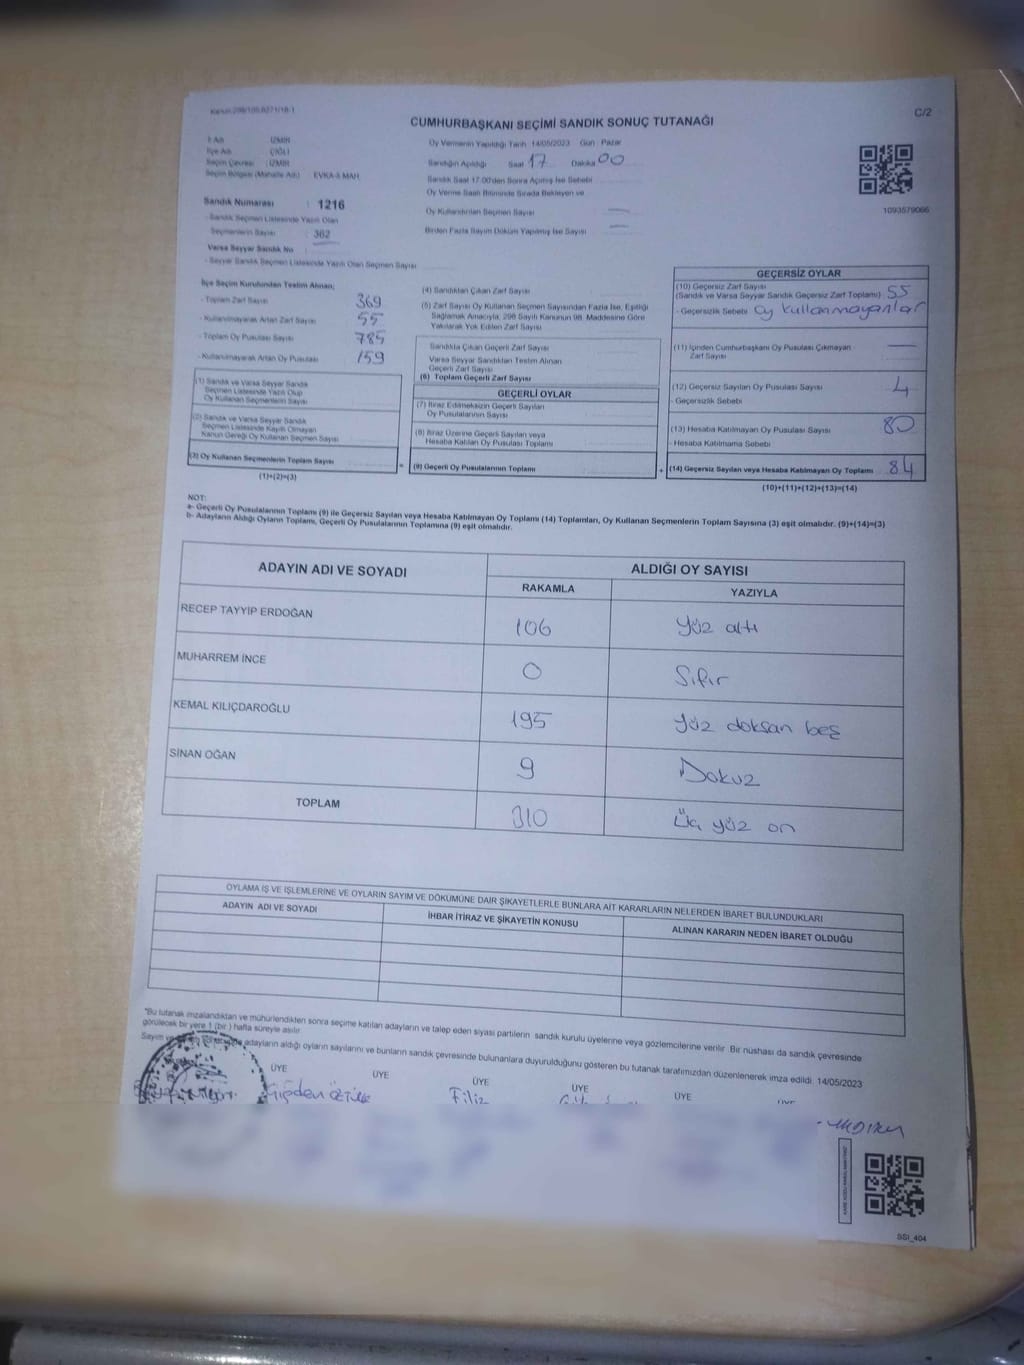 Kanun:298/105,6271/18-1
C/2
CUMHURBAŞKANI SEÇİMİ SANDIK SONUÇ TUTANAĞI
İl Adı : İZMİR
İlçe Adı : ÇİĞLİ
Seçim Çevresi : İZMİR
Seçim Bölgesi (Mahalle Adı) : EVKA-5 MAH.
Sandık Numarası : 1216
- Sandık Seçmen Listesinde Yazılı Olan
Seçmenlerin Sayısı : 362
Varsa Seyyar Sandık No
- Seyyar Sandık Seçmen Listesinde Yazılı Olan Seçmen Sayısı
Oy Vermenin Yapıldığı Tarih 14/05/2023 Gün : Pazar
Sandığın Açıldığı Saat 17 Dakika 00
Sandık Saat 17.00'den Sonra Açılmış İse Sebebi
Oy Verme Saati Bitiminde Sırada Bekleyen ve
Oy Kullandırılan Seçmen Sayısı —
Birden Fazla Sayım Döküm Yapılmış İse Sayısı —
1093579066
İlçe Seçim Kurulundan Teslim Alınan;
- Toplam Zarf Sayısı 369
- Kullanılmayarak Artan Zarf Sayısı 55
- Toplam Oy Pusulası Sayısı 785
- Kullanılmayarak Artan Oy Pusulası 159
(1) Sandık ve Varsa Seyyar Sandık
Seçmen Listesinde Yazılı Olup
Oy Kullanan Seçmenlerin Sayısı
(2) Sandık ve Varsa Seyyar Sandık
Seçmen Listesinde Kayıtlı Olmayan
Kanun Gereği Oy Kullanan Seçmen Sayısı
(3) Oy Kullanan Seçmenlerin Toplam Sayısı
(1)+(2)=(3)
(4) Sandıktan Çıkan Zarf Sayısı
(5) Zarf Sayısı Oy Kullanan Seçmen Sayısından Fazla İse, Eşitliği
Sağlamak Amacıyla, 298 Sayılı Kanunun 98. Maddesine Göre
Yakılarak Yok Edilen Zarf Sayısı
Sandıkta Çıkan Geçerli Zarf Sayısı
Varsa Seyyar Sandıktan Teslim Alınan
Geçerli Zarf Sayısı
(6) Toplam Geçerli Zarf Sayısı
GEÇERLİ OYLAR
(7) İtiraz Edilmeksizin Geçerli Sayılan
Oy Pusulalarının Sayısı
(8) İtiraz Üzerine Geçerli Sayılan veya
Hesaba Katılan Oy Pusulası Toplamı
(9) Geçerli Oy Pusulalarının Toplamı
GEÇERSİZ OYLAR
(10) Geçersiz Zarf Sayısı
(Sandık ve Varsa Seyyar Sandık Geçersiz Zarf Toplamı) 55
- Geçersizlik Sebebi Oy kullanmayanlar
(11) İçinden Cumhurbaşkanı Oy Pusulası Çıkmayan
Zarf Sayısı —
(12) Geçersiz Sayılan Oy Pusulası Sayısı 4
- Geçersizlik Sebebi
(13) Hesaba Katılmayan Oy Pusulası Sayısı 80
- Hesaba Katılmama Sebebi
(14) Geçersiz Sayılan veya Hesaba Katılmayan Oy Toplamı 84
(10)+(11)+(12)+(13)=(14)
NOT:
a- Geçerli Oy Pusulalarının Toplamı (9) ile Geçersiz Sayılan veya Hesaba Katılmayan Oy Toplamı (14) Toplamları, Oy Kullanan Seçmenlerin Toplam Sayısına (3) eşit olmalıdır. (9)+(14)=(3)
b- Adayların Aldığı Oyların Toplamı, Geçerli Oy Pusulalarının Toplamına (9) eşit olmalıdır.
ADAYIN ADI VE SOYADI ALDIĞI OY SAYISI
RAKAMLA YAZIYLA
RECEP TAYYİP ERDOĞAN 106 Yüz altı
MUHARREM İNCE 0 Sıfır
KEMAL KILIÇDAROĞLU 195 Yüz doksan beş
SİNAN OĞAN 9 Dokuz
TOPLAM 310 Üç yüz on
OYLAMA İŞ VE İŞLEMLERİNE VE OYLARIN SAYIM VE DÖKÜMÜNE DAİR ŞİKAYETLERLE BUNLARA AİT KARARLARIN NELERDEN İBARET BULUNDUKLARI
ADAYIN ADI VE SOYADI İHBAR İTİRAZ VE ŞİKAYETİN KONUSU ALINAN KARARIN NEDEN İBARET OLDUĞU
*Bu tutanak imzalandıktan ve mühürlendikten sonra seçime katılan adayların ve talep eden siyasi partilerin sandık kurulu üyelerine veya gözlemcilerine verilir. Bir nüshası da sandık çevresinde
görülecek bir yere 1 (bir ) hafta süreyle asılır.
Sayım ve adayların aldığı oyların sayılarını ve bunların sandık çevresinde bulunanlara duyurulduğunu gösteren bu tutanak tarafımızdan düzenlenerek imza edildi. 14/05/2023
ÜYE ÜYE ÜYE ÜYE ÜYE ÜYE
Filiz
SSI_404